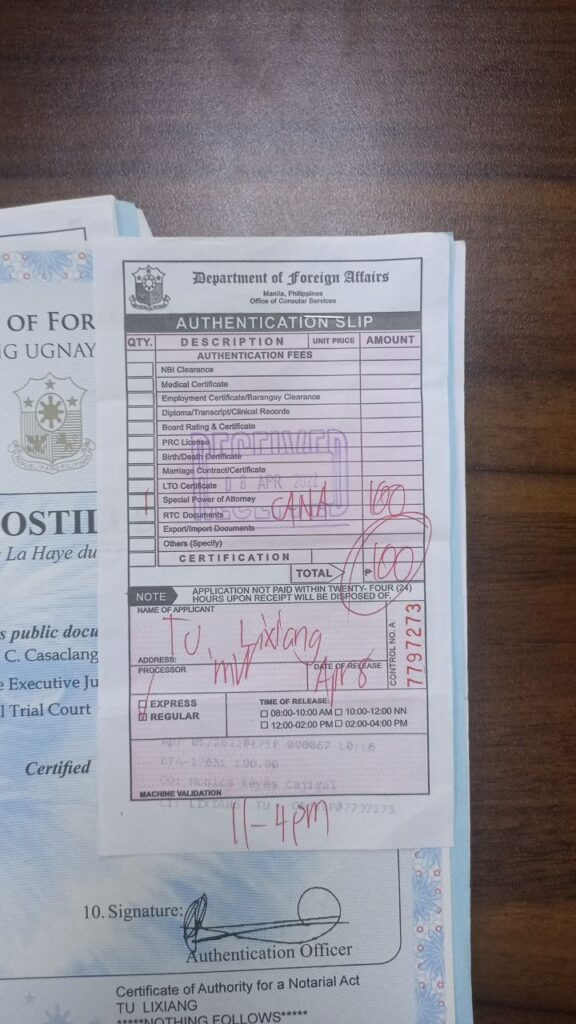 OF FOR
G UGNAY
OSTIL
La Haye du
s public docu
C. Casaclang
e Executive Ju
l Trial Court
Certified
Department of Foreign Affairs
Manila, Philippines
Office of Consular Services
AUTHENTICATION SLIP
QTY. DESCRIPTION UNIT PRICE AMOUNT
AUTHENTICATION FEES
NBI Clearance
Medical Certificate
Employment Certificate/Barangay Clearance
Diploma/Transcript/Clinical Records
Board Rating & Certificate
PRC License
Birth/Death Certificate
Marriage Contract/Certificate
LTO Certificate
RECEIVED
APR 2022
1 Special Power of Attorney
RTC Documents CANA 100
Export/Import Documents
Others (Specify)
CERTIFICATION
TOTAL ₱ 100
NOTE APPLICATION NOT PAID WITHIN TWENTY-FOUR (24)
HOURS UPON RECEIPT WILL BE DISPOSED OF.
NAME OF APPLICANT
TU Lixiang
ADDRESS:
PROCESSOR
DATE OF RELEASE
Apr 8
CONTROL NO. A 7797273
EXPRESS
REGULAR
TIME OF RELEASE:
08:00-10:00 AM 10:00-12:00 NN
12:00-02:00 PM 02:00-04:00 PM
100.00
LIXIANG TU
MACHINE VALIDATION
11-4pm
10. Signature:
Authentication Officer
Certificate of Authority for a Notarial Act
TU LIXIANG
*****NOTHING FOLLOWS*****